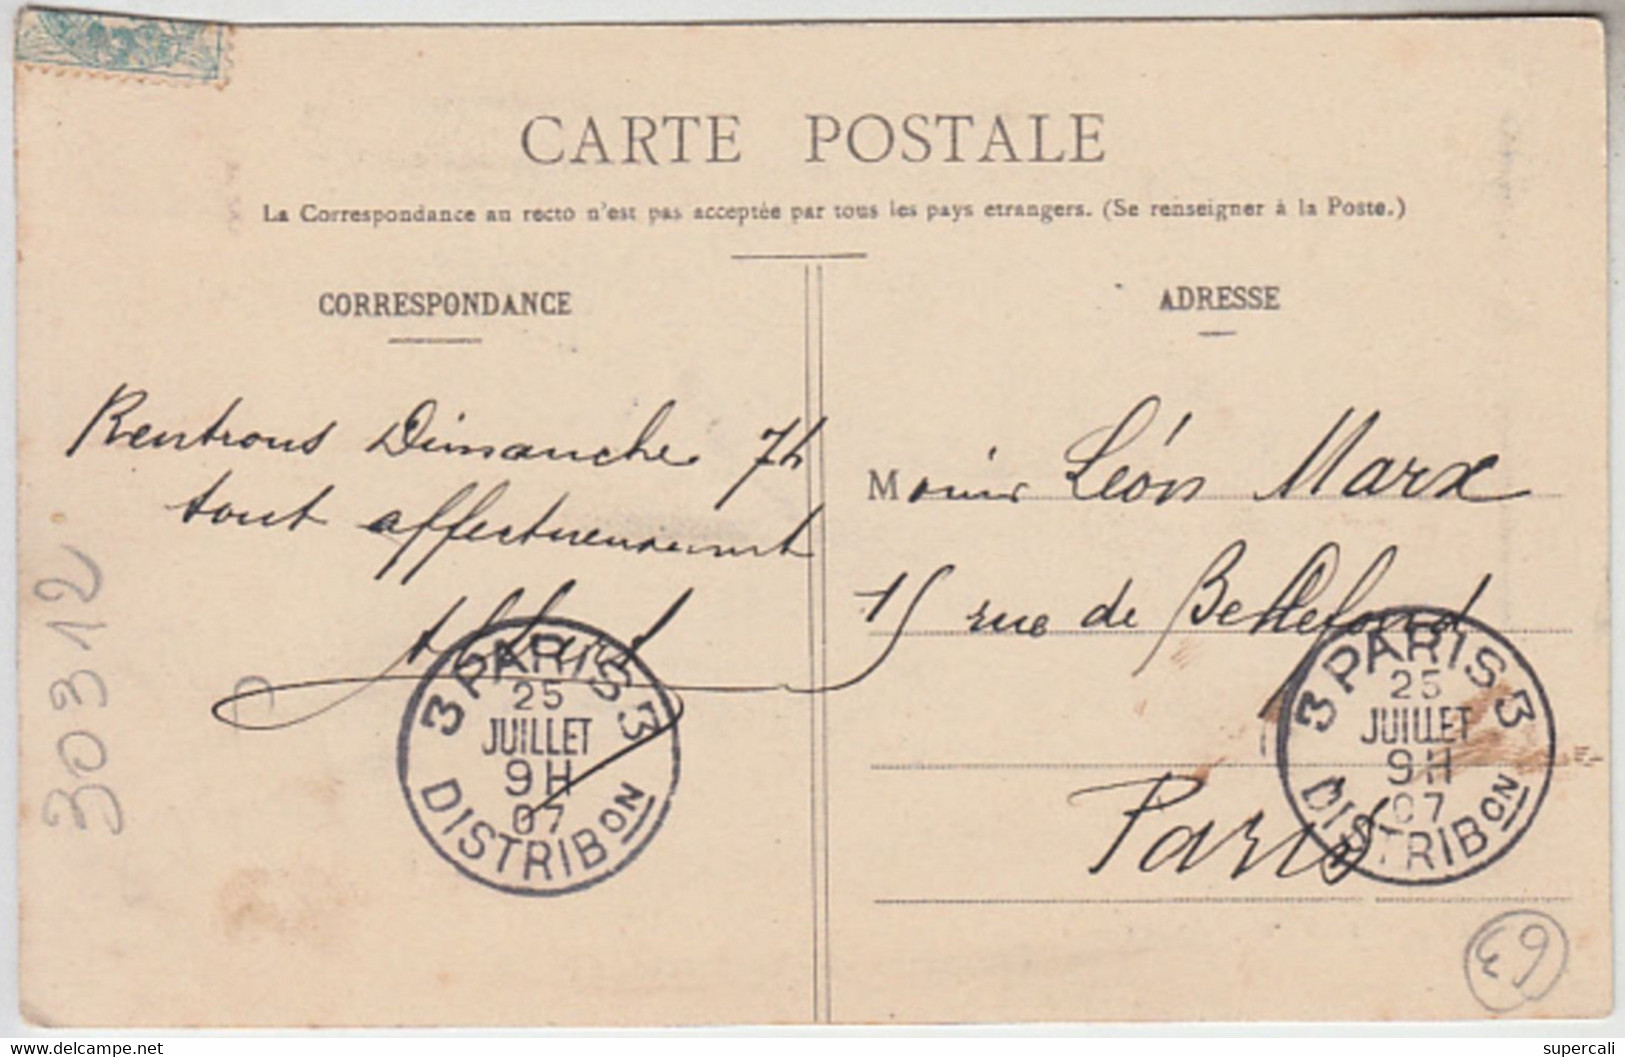 CARTE POSTALE
La Correspondance au recto n'est pas acceptée par tous les pays etrangers. (Se renseigner à la Poste.)
CORRESPONDANCE
Rentrons Dimanche 7h
tout affectueusement
ADRESSE
Léon Marx
15 rue de Bellefond
Paris
3 PARIS 3
25
JUILLET
9H
07
DISTRIBON
3 PARIS 3
25
JUILLET
9H
07
DISTRIBON
30312
Delcampe.net
supercali